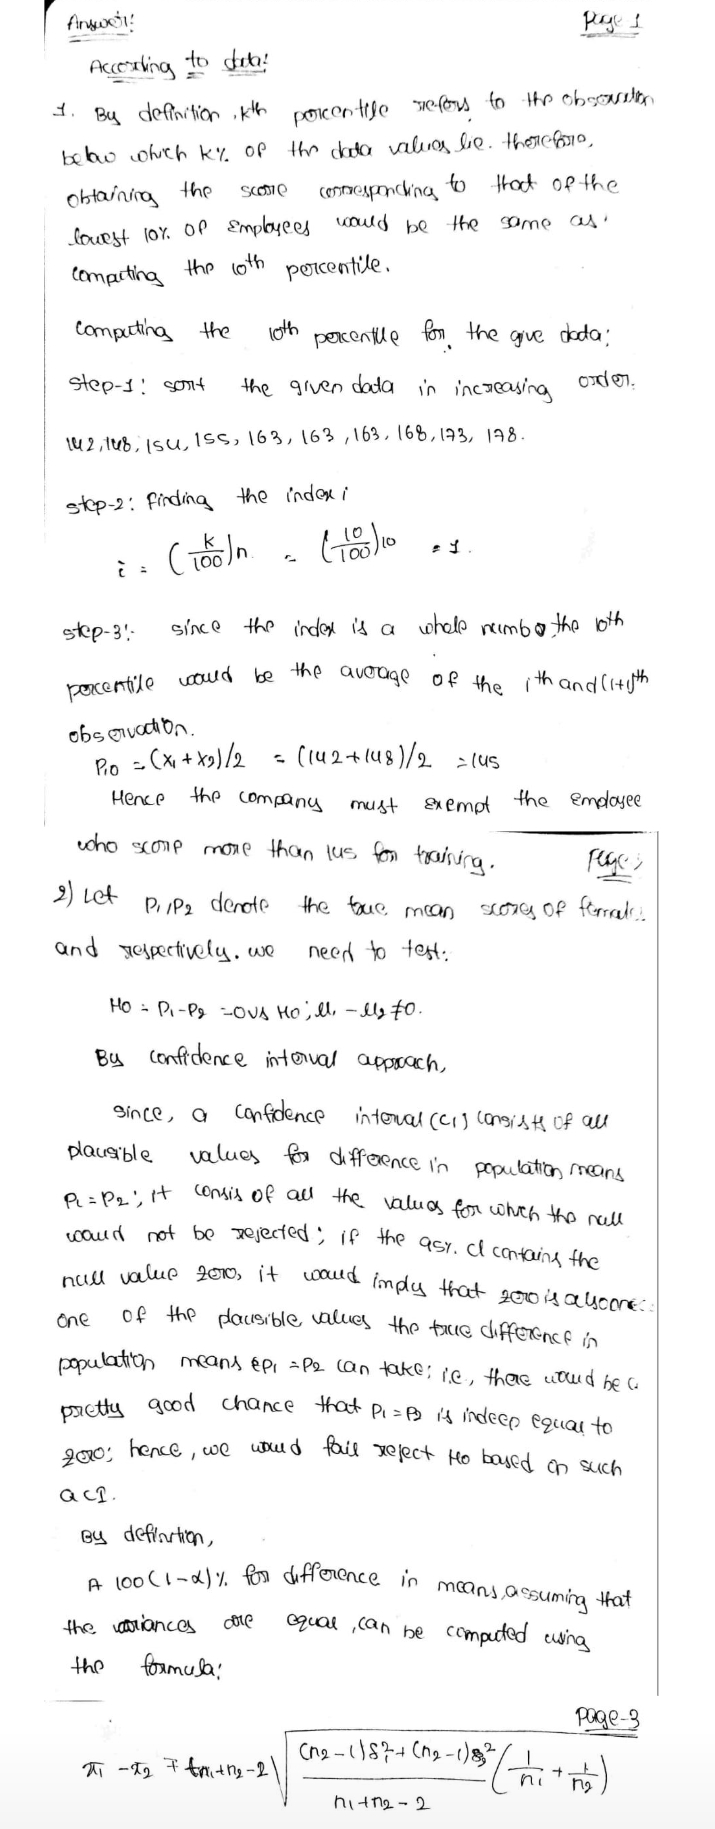 Answer:
Page 1
According to data:
1. By definition, kth percentile refers to the observation
below which k% of the data values lie. therefore,
obtaining the score corresponding to that of the
lowest 10% of Employees would be the same as
Computing the 10th percentile.
Computing the 10th percentile for the give data:
Step-1: sort the given data in increasing order.
142, 148, 154, 155, 163, 163, 163, 168, 173, 178.
step-2: finding the index i
i = (k/100)n = (10/100)10 = 1.
step-3: since the index is a whole number the 10th
percentile would be the average of the ith and (i+1)th
observation.
P10 = (x1 + x2)/2 = (142+148)/2 = 145
Hence the company must exempt the employee
who score more than 145 for training.
Page 2
2) Let P1, P2 denote the true mean scores of female
and respectively. we need to test:
H0 = P1-P2 = 0 vs H0; μ1 - μ2 ≠ 0.
By confidence interval approach,
since, a confidence interval (CI) consists of all
plausible values for difference in population means
P1 = P2; it consis of all the values for which the null
would not be rejected; if the 95%. CI contains the
null value zero, it would imply that zero is also one
one of the plausible values the true difference in
population means P1 = P2 can take; i.e., there would be a
pretty good chance that P1 = P2 is indeep equal to
zero; hence, we would fail reject H0 based on such
a CI.
By definition,
A 100(1-α)% for difference in means, assuming that
the variances are equal, can be computed using
the formula:
Page-3
x̄1 - x̄2 ∓ tn1+n2-2 √ (n2-1)s1²+(n2-1)s2² / n1+n2-2 (1/n1 + 1/n2)